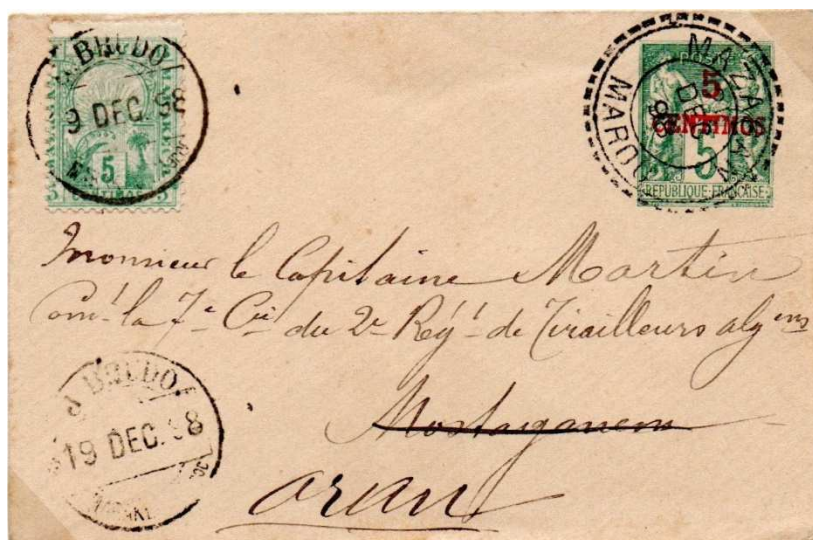 J. BRUDO
9 DEC. 98
5
CENTIMOS
MAZAGAN
DEC
98
MAROC
5
CENTIMOS
5
REPUBLIQUE FRANÇAISE
Monsieur le Capitaine Martin
Comt la 7e Cie du 2e Régt de Tirailleurs algens
Mostaganem
Oran
J. BRUDO
19 DEC. 98